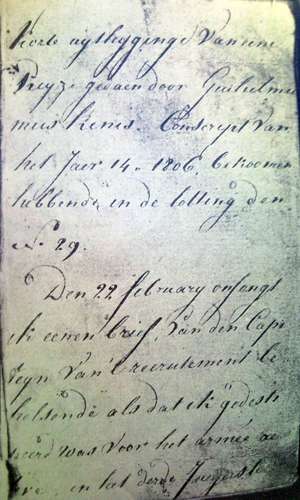 korte uytlegginge van eene
Reyze gedaen door Guilielmus
mus Kenis. Conscript van
het Jaer 14 - 1806, bekoomen
hebbende in de lotting den
N. 29.
Den 22 february onfongt
ik eenen brief, van den Capi
teyn van 't recrutement be
helsende als dat ik gedesti
neerd was voor het armée
en het derde Jagers te